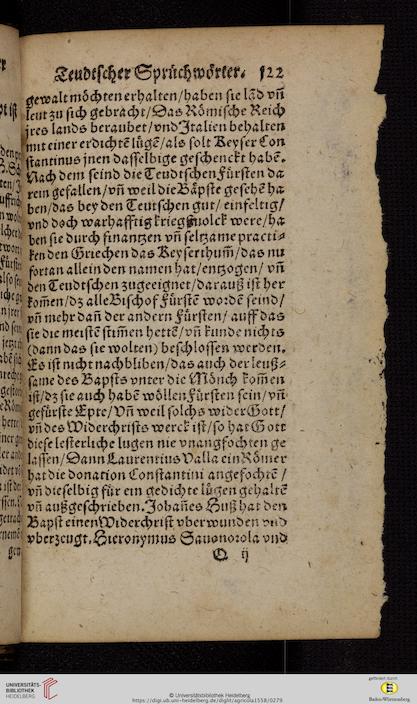 Teudtscher Sprüchwörter. 122
gewalt möchten erhalten/haben sie lād vñ
leut zu sich gebracht/Das Römische Reich
jres lands beraubet/vnd Italien behalten
mit einer erdichtē lügē/als solt Keyser Con
stantinus jnen dasselbige geschenckt habē.
Nach dem seind die Teudtschen Fürsten da
rein gefallen/vñ weil die Bäpste gesehē ha
ben/das bey den Teutschen gut/einfeltig/
vnd doch warhafftig kriegßuolck were/ha
ben sie durch finantzen vñ seltzame practi-
ken den Griechen das Keyserthum̄/das nu
fortan allein den namen hat/entzogen/ vñ
den Teudtschen zugeeignet/darauß ist her
kom̄en/dz alle Bischof Fürstē wordē seind/
vñ mehr dañ der andern Fürsten/ auff das
sie die meistē stim̄en hettē/vñ kunde nichts
(dann das sie wolten) beschlossen werden.
Es ist nicht nachbliben/das auch der leuß-
same des Bapsts vnter die Mönch kom̄en
ist/dz sie auch habē wöllen Fürsten sein/vñ
gefürste Epte/Vñ weil solchs wider Gott/
vñ des Widerchrists werck ist/so hat Gott
diese lesterliche lugen nie vnangfochten ge
lassen/Dann Laurentius Valla ein Römer
hat die donation Constantini angefochtē /
vñ dieselbig für ein gedichte lügen gehaltē
vñ außgeschrieben. Johañes Huß hat den
Bapst einen Widerchrist vberwunden vnd
vberzeugt. Hieronymus Sauonorola vnd
Q ij
gen
UNIVERSITÄTS-
BIBLIOTHEK
HEIDELBERG
© Universitätsbibliothek Heidelberg
https://digi.ub.uni-heidelberg.de/diglit/agricola1558/0279
gefördert durch
Baden-Württemberg